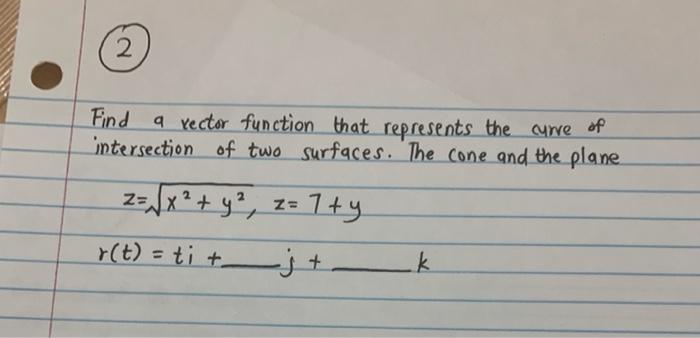 2
Find a vector function that represents the curve of
intersection of two surfaces. The cone and the plane
z=√x²+y², z= 7+y
r(t) = ti +____j + ____k